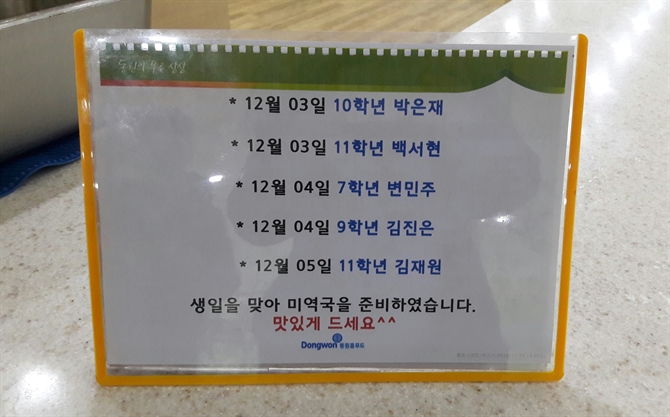 * 12월 03일 10학년 박은재
* 12월 03일 11학년 백서현
* 12월 04일 7학년 변민주
* 12월 04일 9학년 김진은
* 12월 05일 11학년 김재원
생일을 맞아 미역국을 준비하였습니다.
맛있게 드세요^^
Dongwon 동원홈푸드